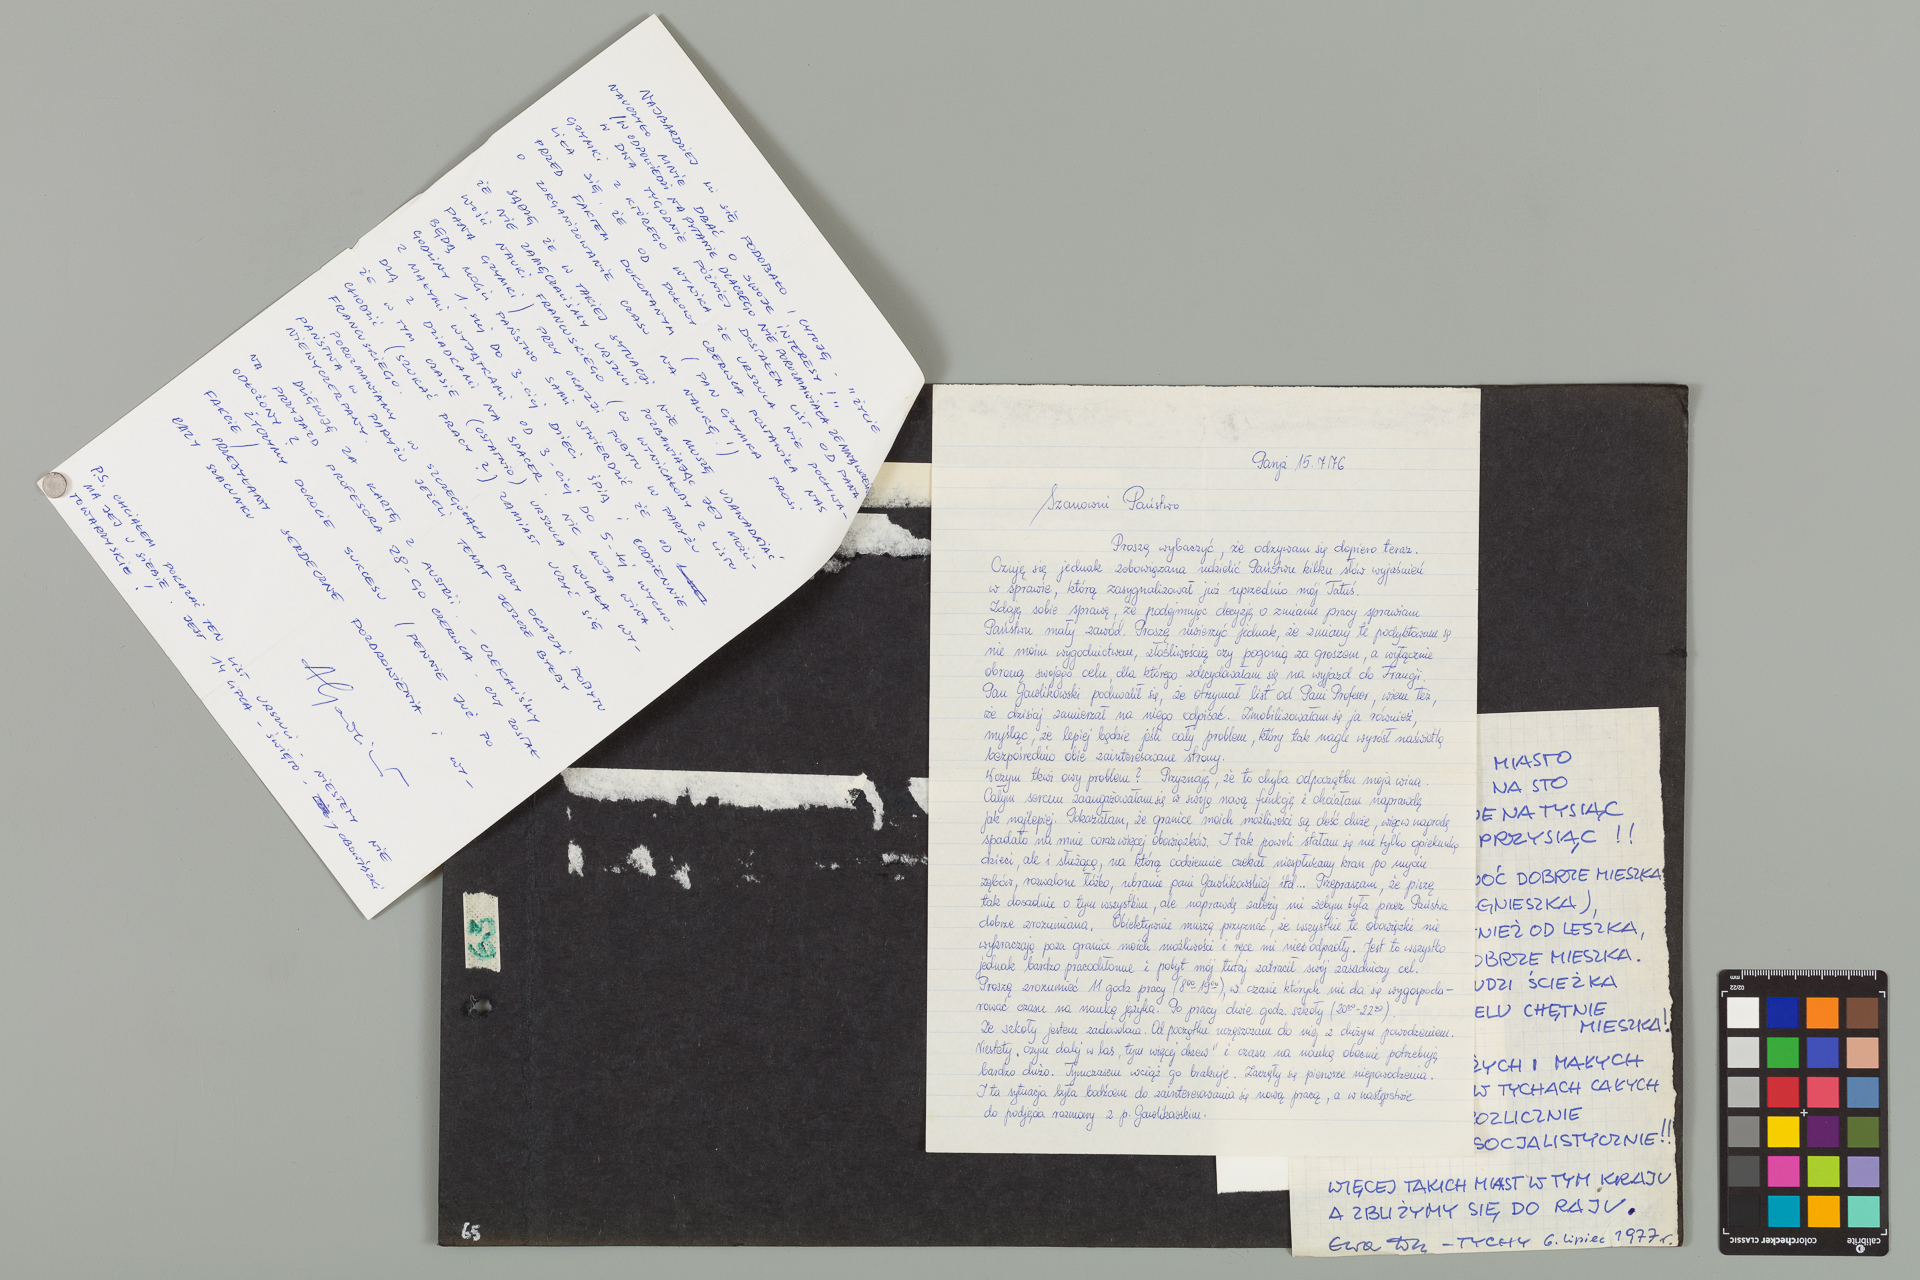 NAJBARDZIEJ MI SIĘ PODOBAŁO I CYTUJĘ - "ŻYCIE
NAUCZYŁO MNIE DBAĆ O SWOJE INTERESY!"
/W ODPOWIEDZI NA PYTANIE DLACZEGO NIE POROZMAWIAŁA ZE MNĄ WCZEŚNIEJ
W DWA TYGODNIE PÓŹNIEJ DOSTAŁEM LIST OD PANA
GZYMKI Z KTÓREGO WYNIKA ŻE URSZULA NIE POCHWA-
LIŁA SIĘ ŻE OD POŁOWY CZERWCA POSTAWIŁA NAS
PRZED FAKTEM DOKONANYM (PAN GZYMKA PROSI
O ZORGANIZOWANIE CZASU NA NAUKĘ!)
SĄDZĘ ŻE W TAKIEJ SYTUACJI NIE MUSZĘ UDAWADNIAĆ
ŻE NIE ZAMĘCZALIŚMY URSZULI POZBAWIAJĄC JEJ MOŻLI-
WOŚCI NAUKI FRANCUSKIEGO (CO WYNIKAŁOBY Z LISTU
PANA GZYMKI) PRZY OKAZJI POBYTU W PARYŻU
BĘDĄ MOGLI PAŃSTWO SAMI STWIERDZIĆ ŻE OD
GODZINY 1-SZEJ DO 3-CIEJ DZIECI ŚPIĄ I CODZIENNIE
Z MAŁYMI WYJĄTKAMI OD 3-CIEJ DO 5-TEJ WYCHO-
DZĄ Z DZIADKAMI NA SPACER. NIE MOJA WINA
ŻE W TYM CZASIE (OSTATNIO) URSZULA WOLAŁA WY-
CHODZIĆ (SZUKAĆ PRACY?) ZAMIAST UCZYĆ SIĘ
FRANCUSKIEGO.
POROZMAWIAMY W SZCZEGÓŁACH PRZY OKAZJI POBYTU
PAŃSTWA W PARYŻU JEŻELI TEMAT JESZCZE BYŁBY
NIEWYCZERPANY.
DZIĘKUJĘ ZA KARTĘ Z AUSTRII - CZEKALIŚMY
NA PRZYJAZD PROFESORA 28-GO CZERWCA - CZY ZOSTAŁ
ODŁOŻONY?
ŻYCZYMY DOROCIE SUKCESU (PEWNIE JUŻ PO
FAKCIE) PRZESYŁAMY SERDECZNE POZDROWIENIA I WY-
RAZY SZACUNKU
P.S. CHCIAŁEM POKAZAĆ TEN LIST URSZULI - NIESTETY NIE
MA JEJ U SIEBIE. JEST 14 LIPCA - ŚWIĘTO - I OBOWIĄZKI
TOWARZYSKIE!
63
65
Paryż 15.7.76
Szanowni Państwo
Proszę wybaczyć, że odzywam się dopiero teraz.
Czuję się jednak zobowiązana udzielić Państwu kilku słów wyjaśnień
w sprawie, którą zasygnalizował już uprzednio mój Tatuś.
Zdaję sobie sprawę, że podejmując decyzję o zmianie pracy sprawiam
Państwu mały zawód. Proszę uwierzyć jednak, że zmiany te podyktowane są
nie moim wygodnictwem, złośliwością czy pogonią za groszem, a wyłącznie
obroną swojego celu dla którego zdecydowałam się na wyjazd do Francji.
Pan Gawlikowski pochwalił się, że otrzymał list od Pani Profesor, wiem też,
że dzisiaj zamierzał na niego odpisać. Zmobilizowałam się ja również,
myśląc, że lepiej będzie jeśli cały problem, który tak nagle wyrósł naświetlą
bezpośrednio obie zainteresowane strony.
W czym tkwi owy problem? Przyznaję, że to chyba od początku moja wina.
Całym sercem zaangażowałam się w swoją nową funkcję i chciałam naprawdę
jak najlepiej. Pokazałam, że granice moich możliwości są dość duże, więc w nagrodę
spadało na mnie coraz więcej obowiązków. I tak powoli stałam się nie tylko opiekunką
dzieci, ale i służącą, na którą codziennie czekał niespłukany kran po myciu
zębów, rozwalone łóżko, ubranie pani Gawlikowskiej itd... Przepraszam, że piszę
tak dosadnie o tym wszystkim, ale naprawdę zależy mi żebym była przez Państwa
dobrze zrozumiana. Obiektywnie muszę przyznać, że wszystkie te obowiązki nie
wykraczają poza granice moich możliwości i ręce mi nie odpadły. Jest to wszystko
jednak bardzo pracochłonne i pobyt mój tutaj zatracił swój zasadniczy cel.
Proszę zrozumieć 11 godz pracy (8⁰⁰-19⁰⁰), w czasie których nie da się wygospoda-
rować czasu na naukę języka. Po pracy dwie godz. szkoły (20⁰⁰-22⁰⁰).
Ze szkoły jestem zadowolona. Od początku uczęszczam do niej z dużym powodzeniem.
Niestety, czym dalej w las „tym więcej drzew" i czasu na naukę obecnie potrzebuję
bardzo dużo. Tymczasem wciąż go brakuje. Zaczęły się pierwsze niepowodzenia.
I ta sytuacja była bodźcem do zainteresowania się nową pracą, a w następstwie
do podjęcia rozmowy z p. Gawlikowskim.
MIASTO
NA STO
NA TYSIĄC
PRZYSIĄC !!
DOBRZE MIESZKA
GNIESZKA),
NIEŻ OD LESZKA,
OBRZE MIESZKA.
UDZI ŚCIEŻKA
ELU CHĘTNIE
MIESZKA!
ŻYCH I MAŁYCH
W TYCHACH CAŁYCH
OZLICZNIE
SOCJALISTYCZNIE!!
WIĘCEJ TAKICH MIAST W TYM KRAJU
A ZBLIŻYMY SIĘ DO RAJU.
Ewa - TYCHY 6. lipiec 1977 r.
colorchecker CLASSIC
calibrite
mm